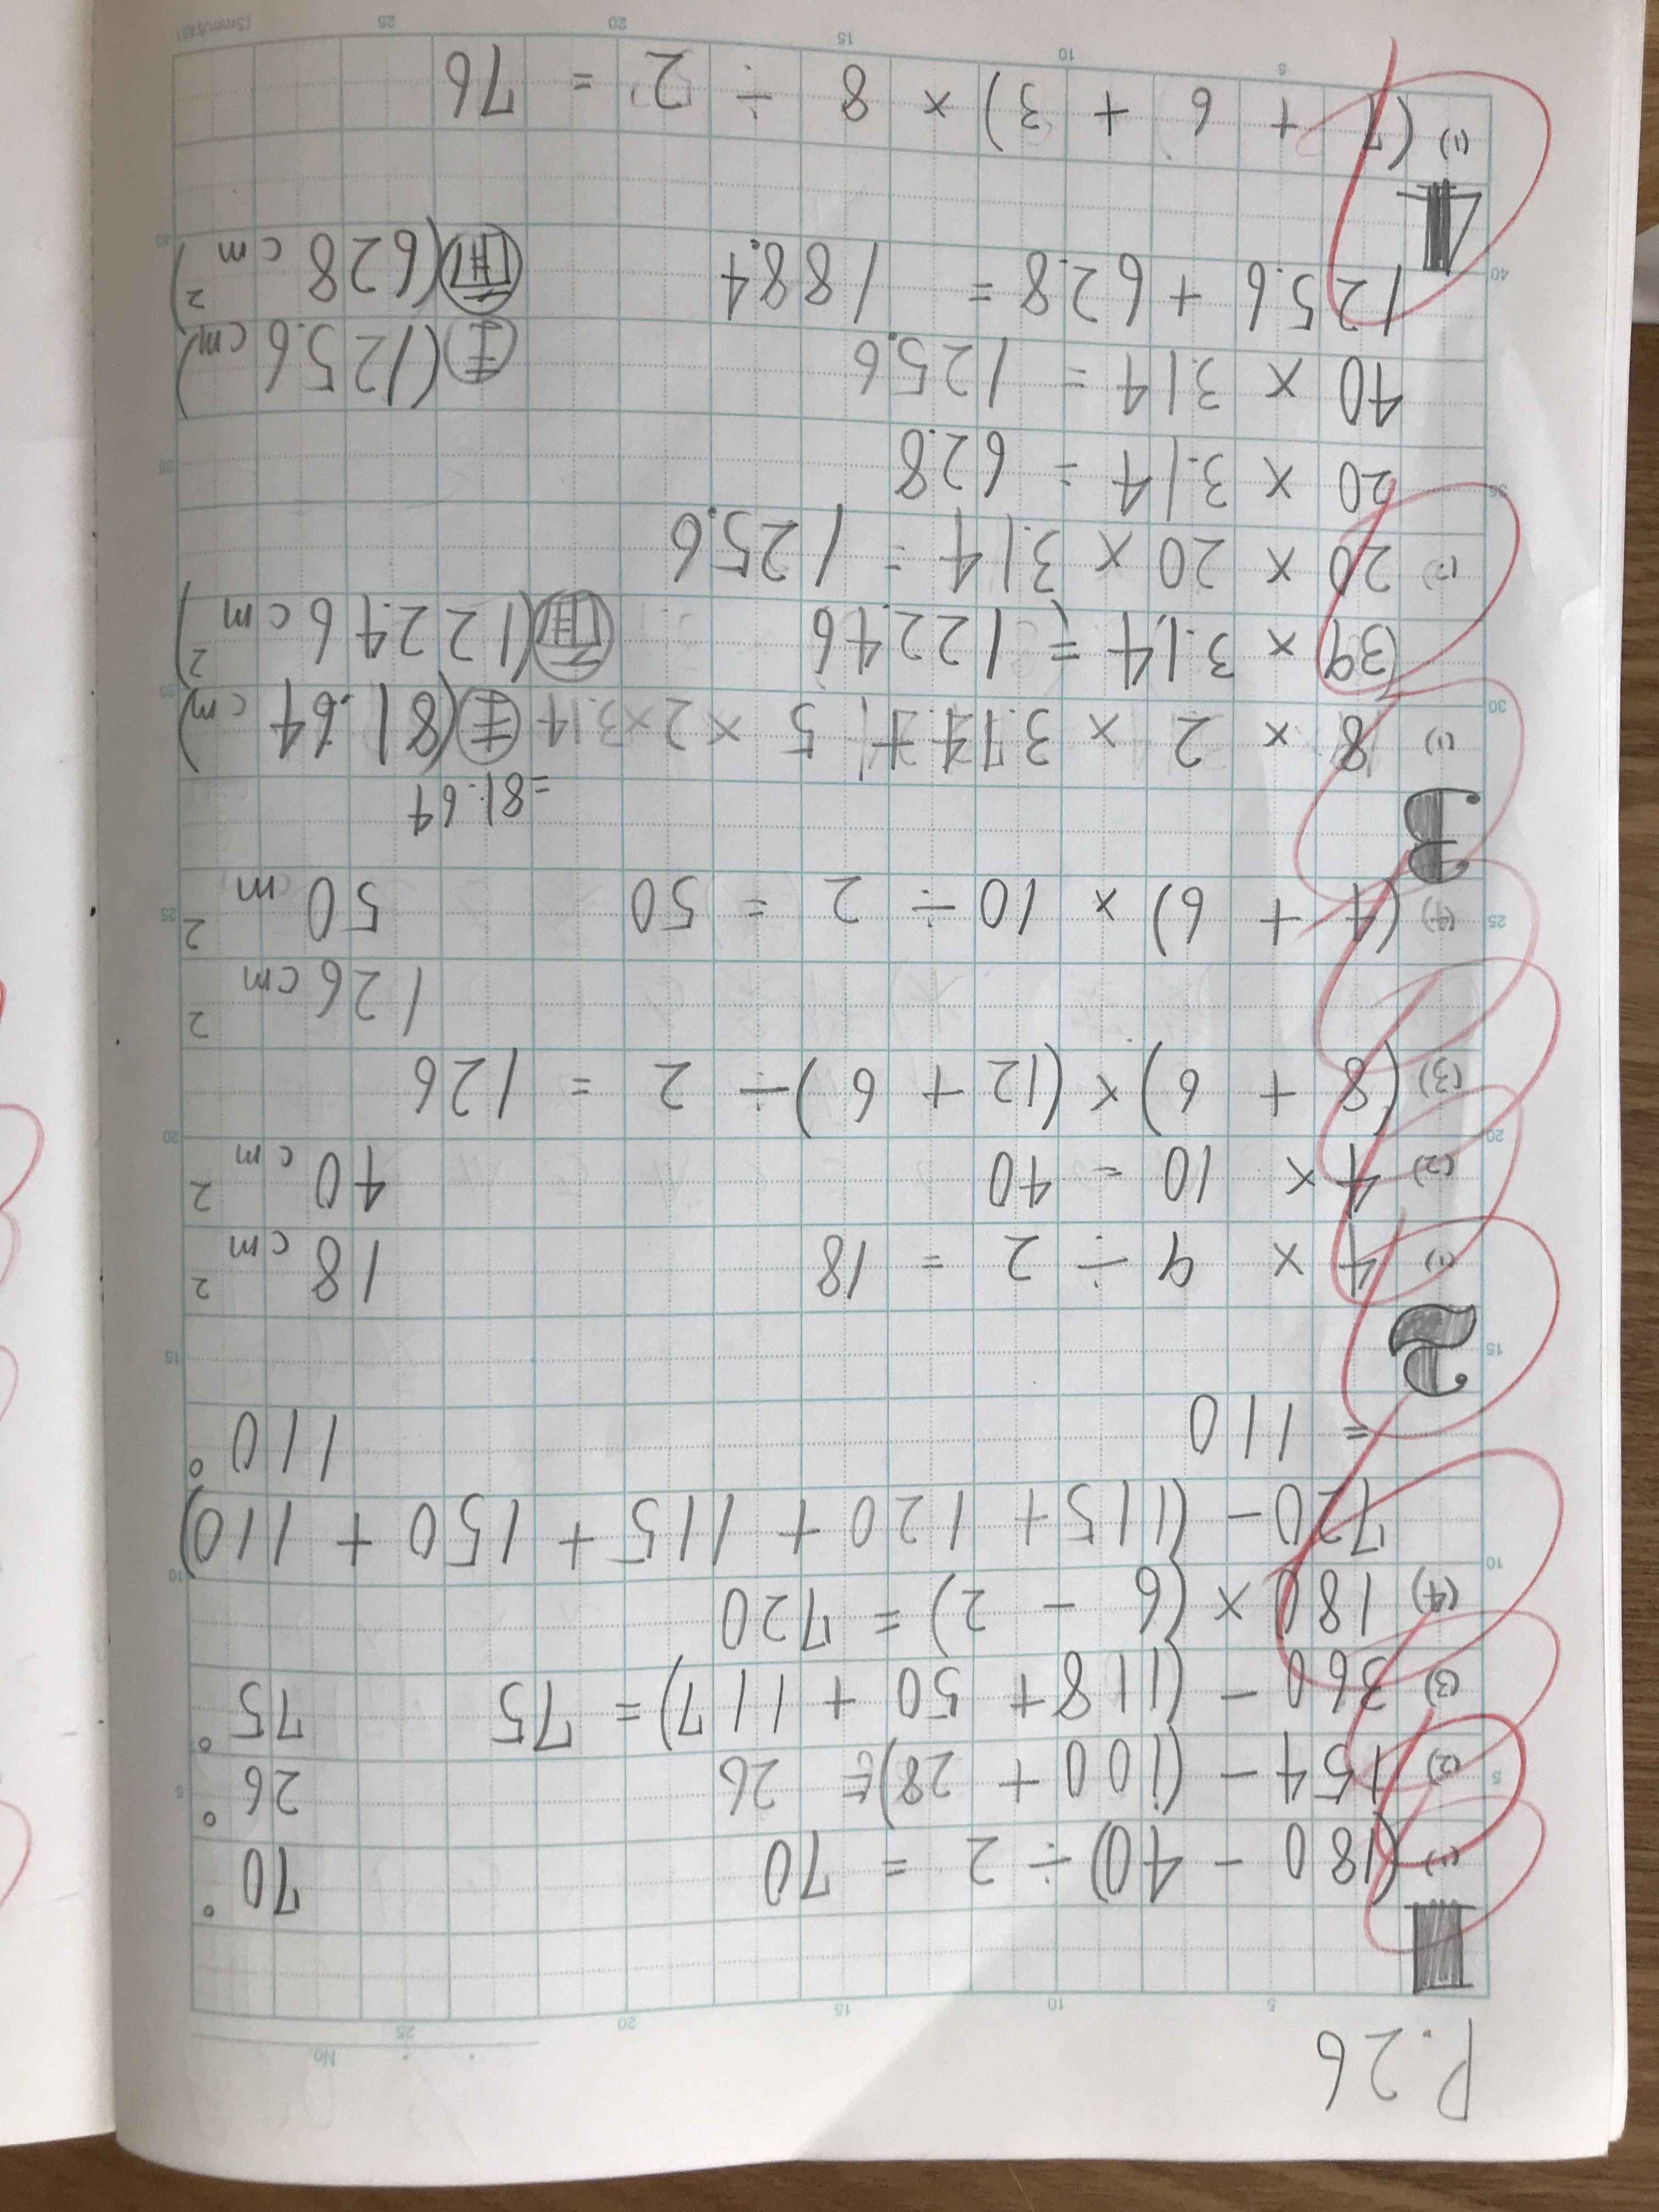 P.26
No.
1
(1) (180 - 40) ÷ 2 = 70 70°
(2) 154 - (100 + 28) = 26 26°
(3) 360 - (118 + 50 + 117) = 75 75°
(4) 180 × (6 - 2) = 720
720 - (115 + 120 + 115 + 150 + 110)
= 110 110°
2
(1) 4 × 9 ÷ 2 = 18 18cm²
(2) 4 × 10 = 40 40cm²
(3) (8 + 6) × (12 + 6) ÷ 2 = 126
126cm²
(4) (4 + 6) × 10 ÷ 2 = 50 50cm²
3
= 81.64
(1) 8 × 2 × 3.14 + 5 × 2 × 3.14 (81.64cm)
(39 × 3.14 = 122.46 面(122.46cm²)
(2) 20 × 20 × 3.14 = 125.6
20 × 3.14 = 62.8
40 × 3.14 = 125.6 (125.6cm)
125.6 + 62.8 = 188.4 面(628cm²)
4
(1) (7 + 6 + 3) × 8 ÷ 2 = 76